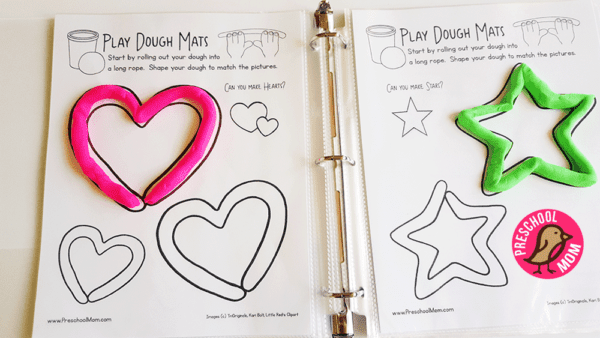 PLAY DOUGH MATS
Start by rolling out your dough into
a long rope. Shape your dough to match the pictures.
CAN YOU MAKE HEARTS?
www.PreschoolMom.com
Images (c) TnOriginals, Kari Bolt, Little Reds Clipart
PLAY DOUGH MATS
Start by rolling out your dough into
a long rope. Shape your dough to match the pictures.
CAN YOU MAKE STARS?
www.PreschoolMom.com
PRESCHOOL
MOM